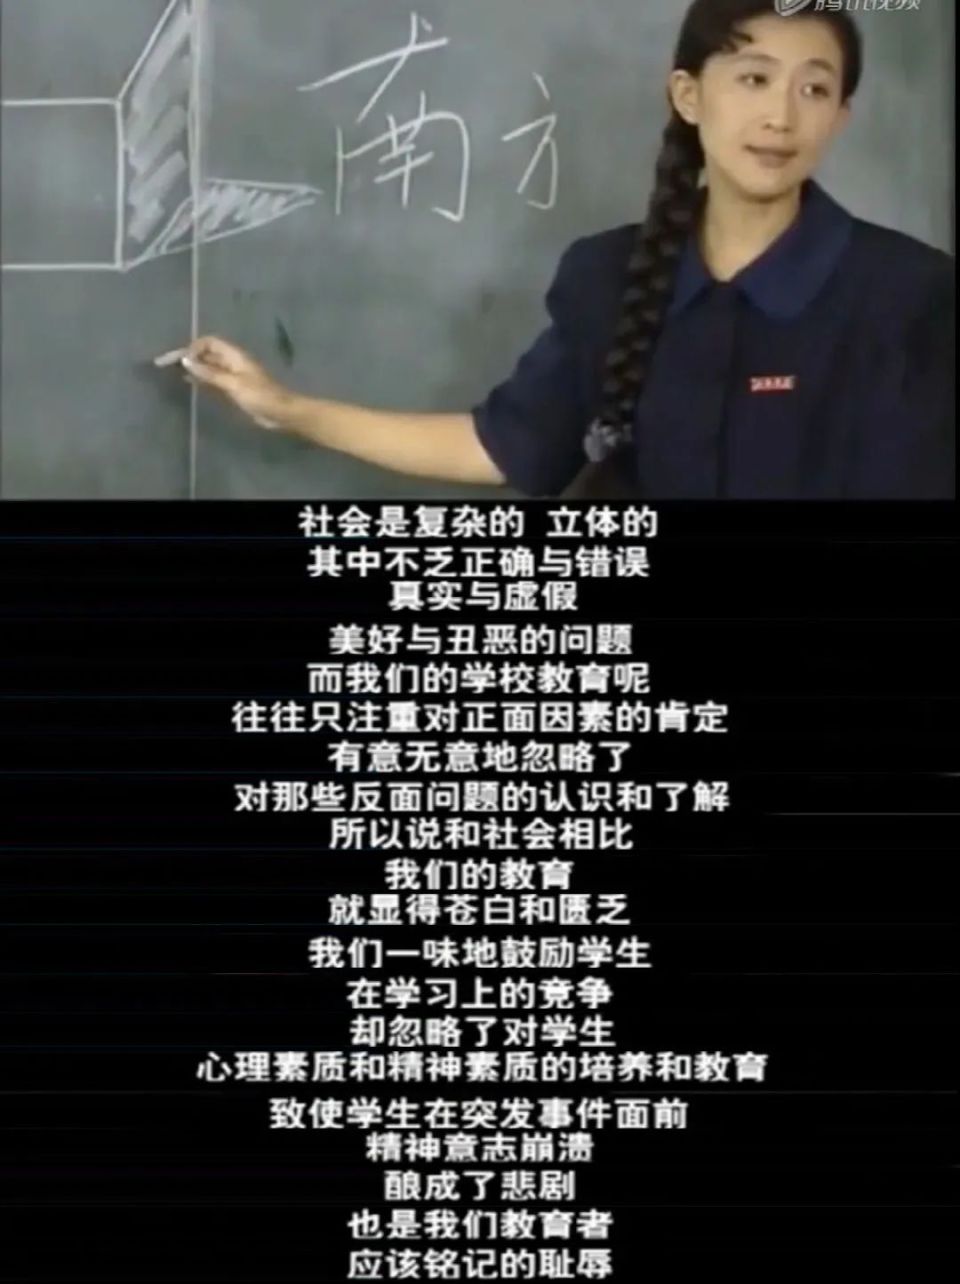 腾讯视频
南方
社会是复杂的 立体的
其中不乏正确与错误
真实与虚假
美好与丑恶的问题
而我们的学校教育呢
往往只注重对正面因素的肯定
有意无意地忽略了
对那些反面问题的认识和了解
所以说和社会相比
我们的教育
就显得苍白和匮乏
我们一味地鼓励学生
在学习上的竞争
却忽略了对学生
心理素质和精神素质的培养和教育
致使学生在突发事件面前
精神意志崩溃
酿成了悲剧
也是我们教育者
应该铭记的耻辱